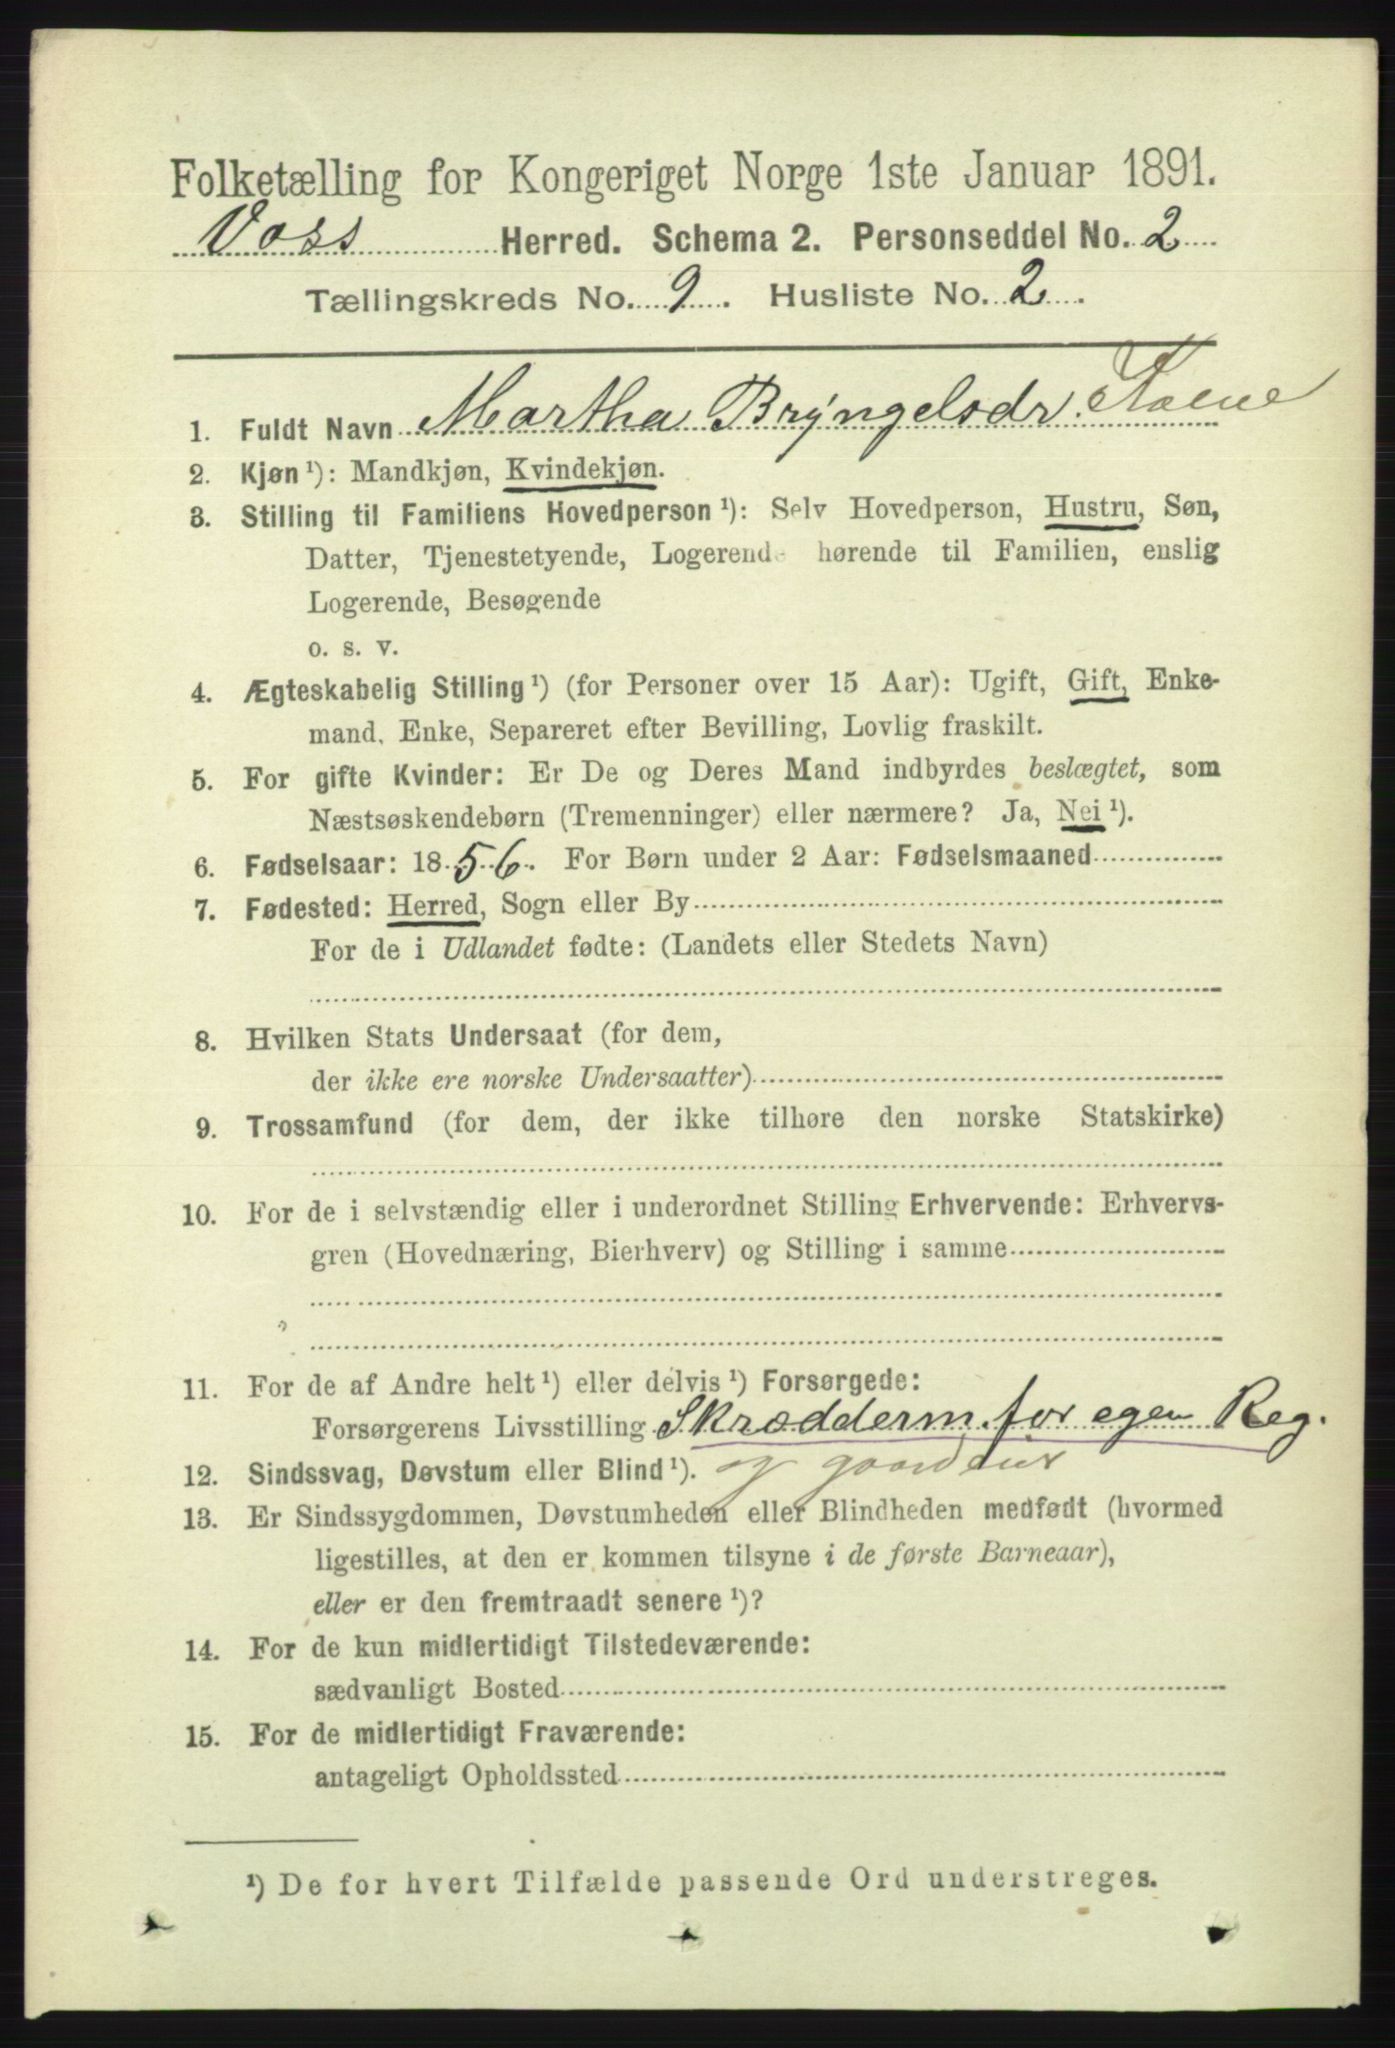 Folketælling for Kongeriget Norge 1ste Januar 1891.
Voss Herred. Schema 2. Personseddel No. 2
Tællingskreds No. 9. Husliste No. 2.
1. Fuldt Navn Martha Brýngelsdr.
2. Kjøn ¹): Mandkjøn, Kvindekjøn.
3. Stilling til Familiens Hovedperson ¹): Selv Hovedperson, Hustru, Søn,
Datter, Tjenestetyende, Logerende hørende til Familien, enslig
Logerende, Besøgende
o. s. v.
4. Ægteskabelig Stilling ¹) (for Personer over 15 Aar): Ugift, Gift, Enke-
mand, Enke, Separeret efter Bevilling, Lovlig fraskilt.
5. For gifte Kvinder: Er De og Deres Mand indbyrdes beslægtet, som
Næstsøskendebørn (Tremenninger) eller nærmere? Ja, Nei ¹).
6. Fødselsaar: 1856. For Børn under 2 Aar: Fødselsmaaned
7. Fødested: Herred, Sogn eller By
For de i Udlandet fødte: (Landets eller Stedets Navn)
8. Hvilken Stats Undersaat (for dem,
der ikke ere norske Undersaatter)
9. Trossamfund (for dem, der ikke tilhøre den norske Statskirke)
10. For de i selvstændig eller i underordnet Stilling Erhvervende: Erhvervs-
gren (Hovednæring, Bierhverv) og Stilling i samme
11. For de af Andre helt ¹) eller delvis ¹) Forsørgede:
Forsørgerens Livsstilling Skrædderm. for egen Reg.
og gaardbr
12. Sindssvag, Døvstum eller Blind ¹).
13. Er Sindssygdommen, Døvstumheden eller Blindheden medfødt (hvormed
ligestilles, at den er kommen tilsyne i de første Barneaar),
eller er den fremtraadt senere ¹)?
14. For de kun midlertidigt Tilstedeværende:
sædvanligt Bosted
15. For de midlertidigt Fraværende:
antageligt Opholdssted
¹) De for hvert Tilfælde passende Ord understreges.